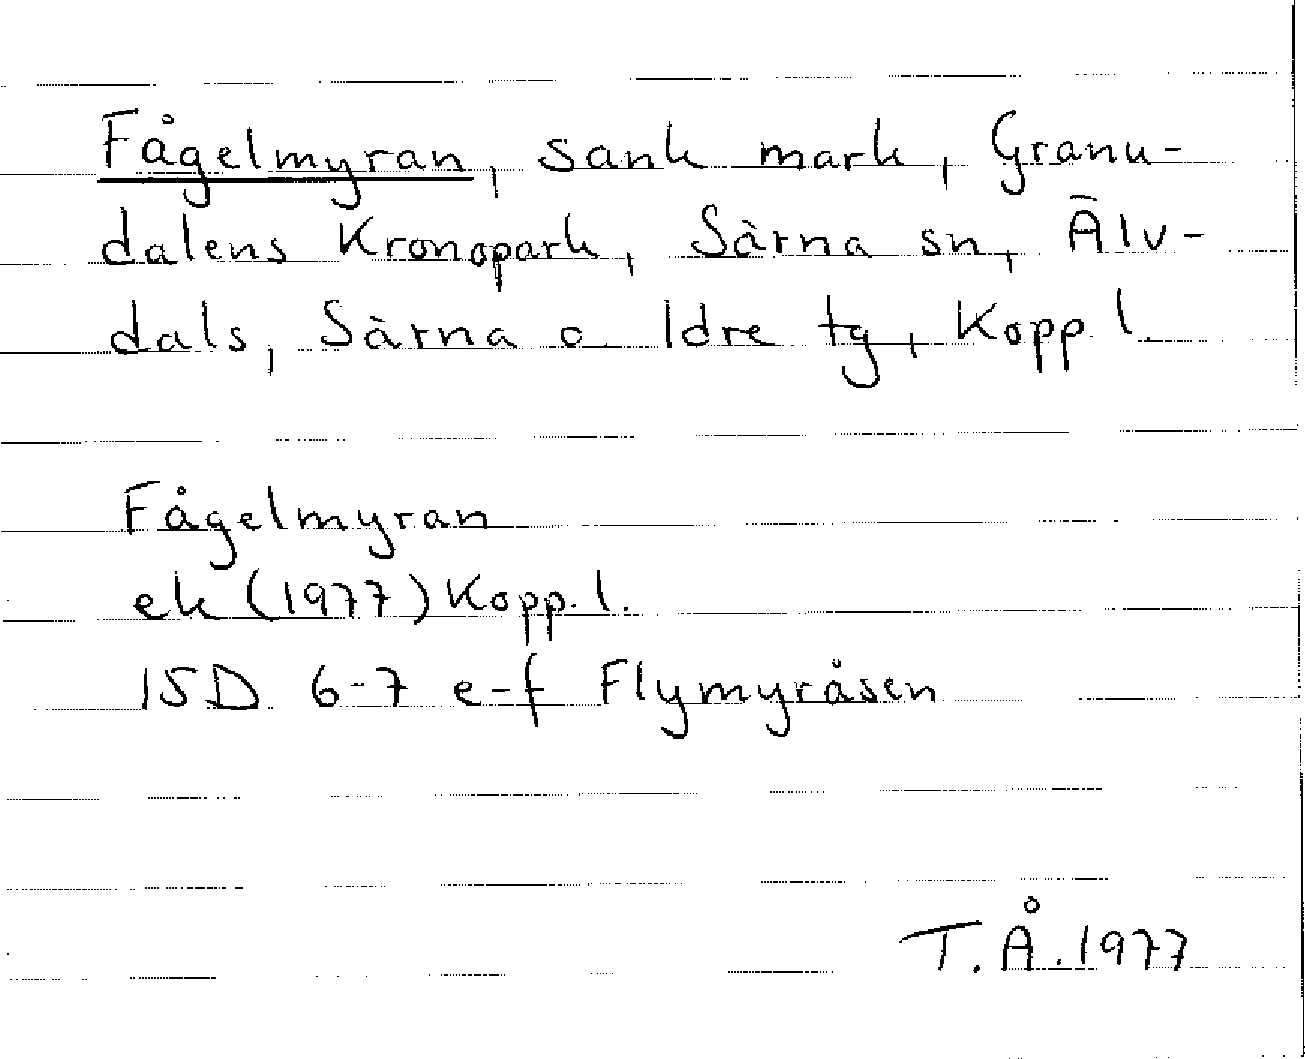 Fågelmyran, sank mark, Granu-
dalens Kronopark, Särna sn, Älv-
dals, Särna o Idre tg, Kopp. l.
Fågelmyran
ek (1977) Kopp. l.
15D 6-7 e-f Flymyråsen
T.Å. 1977